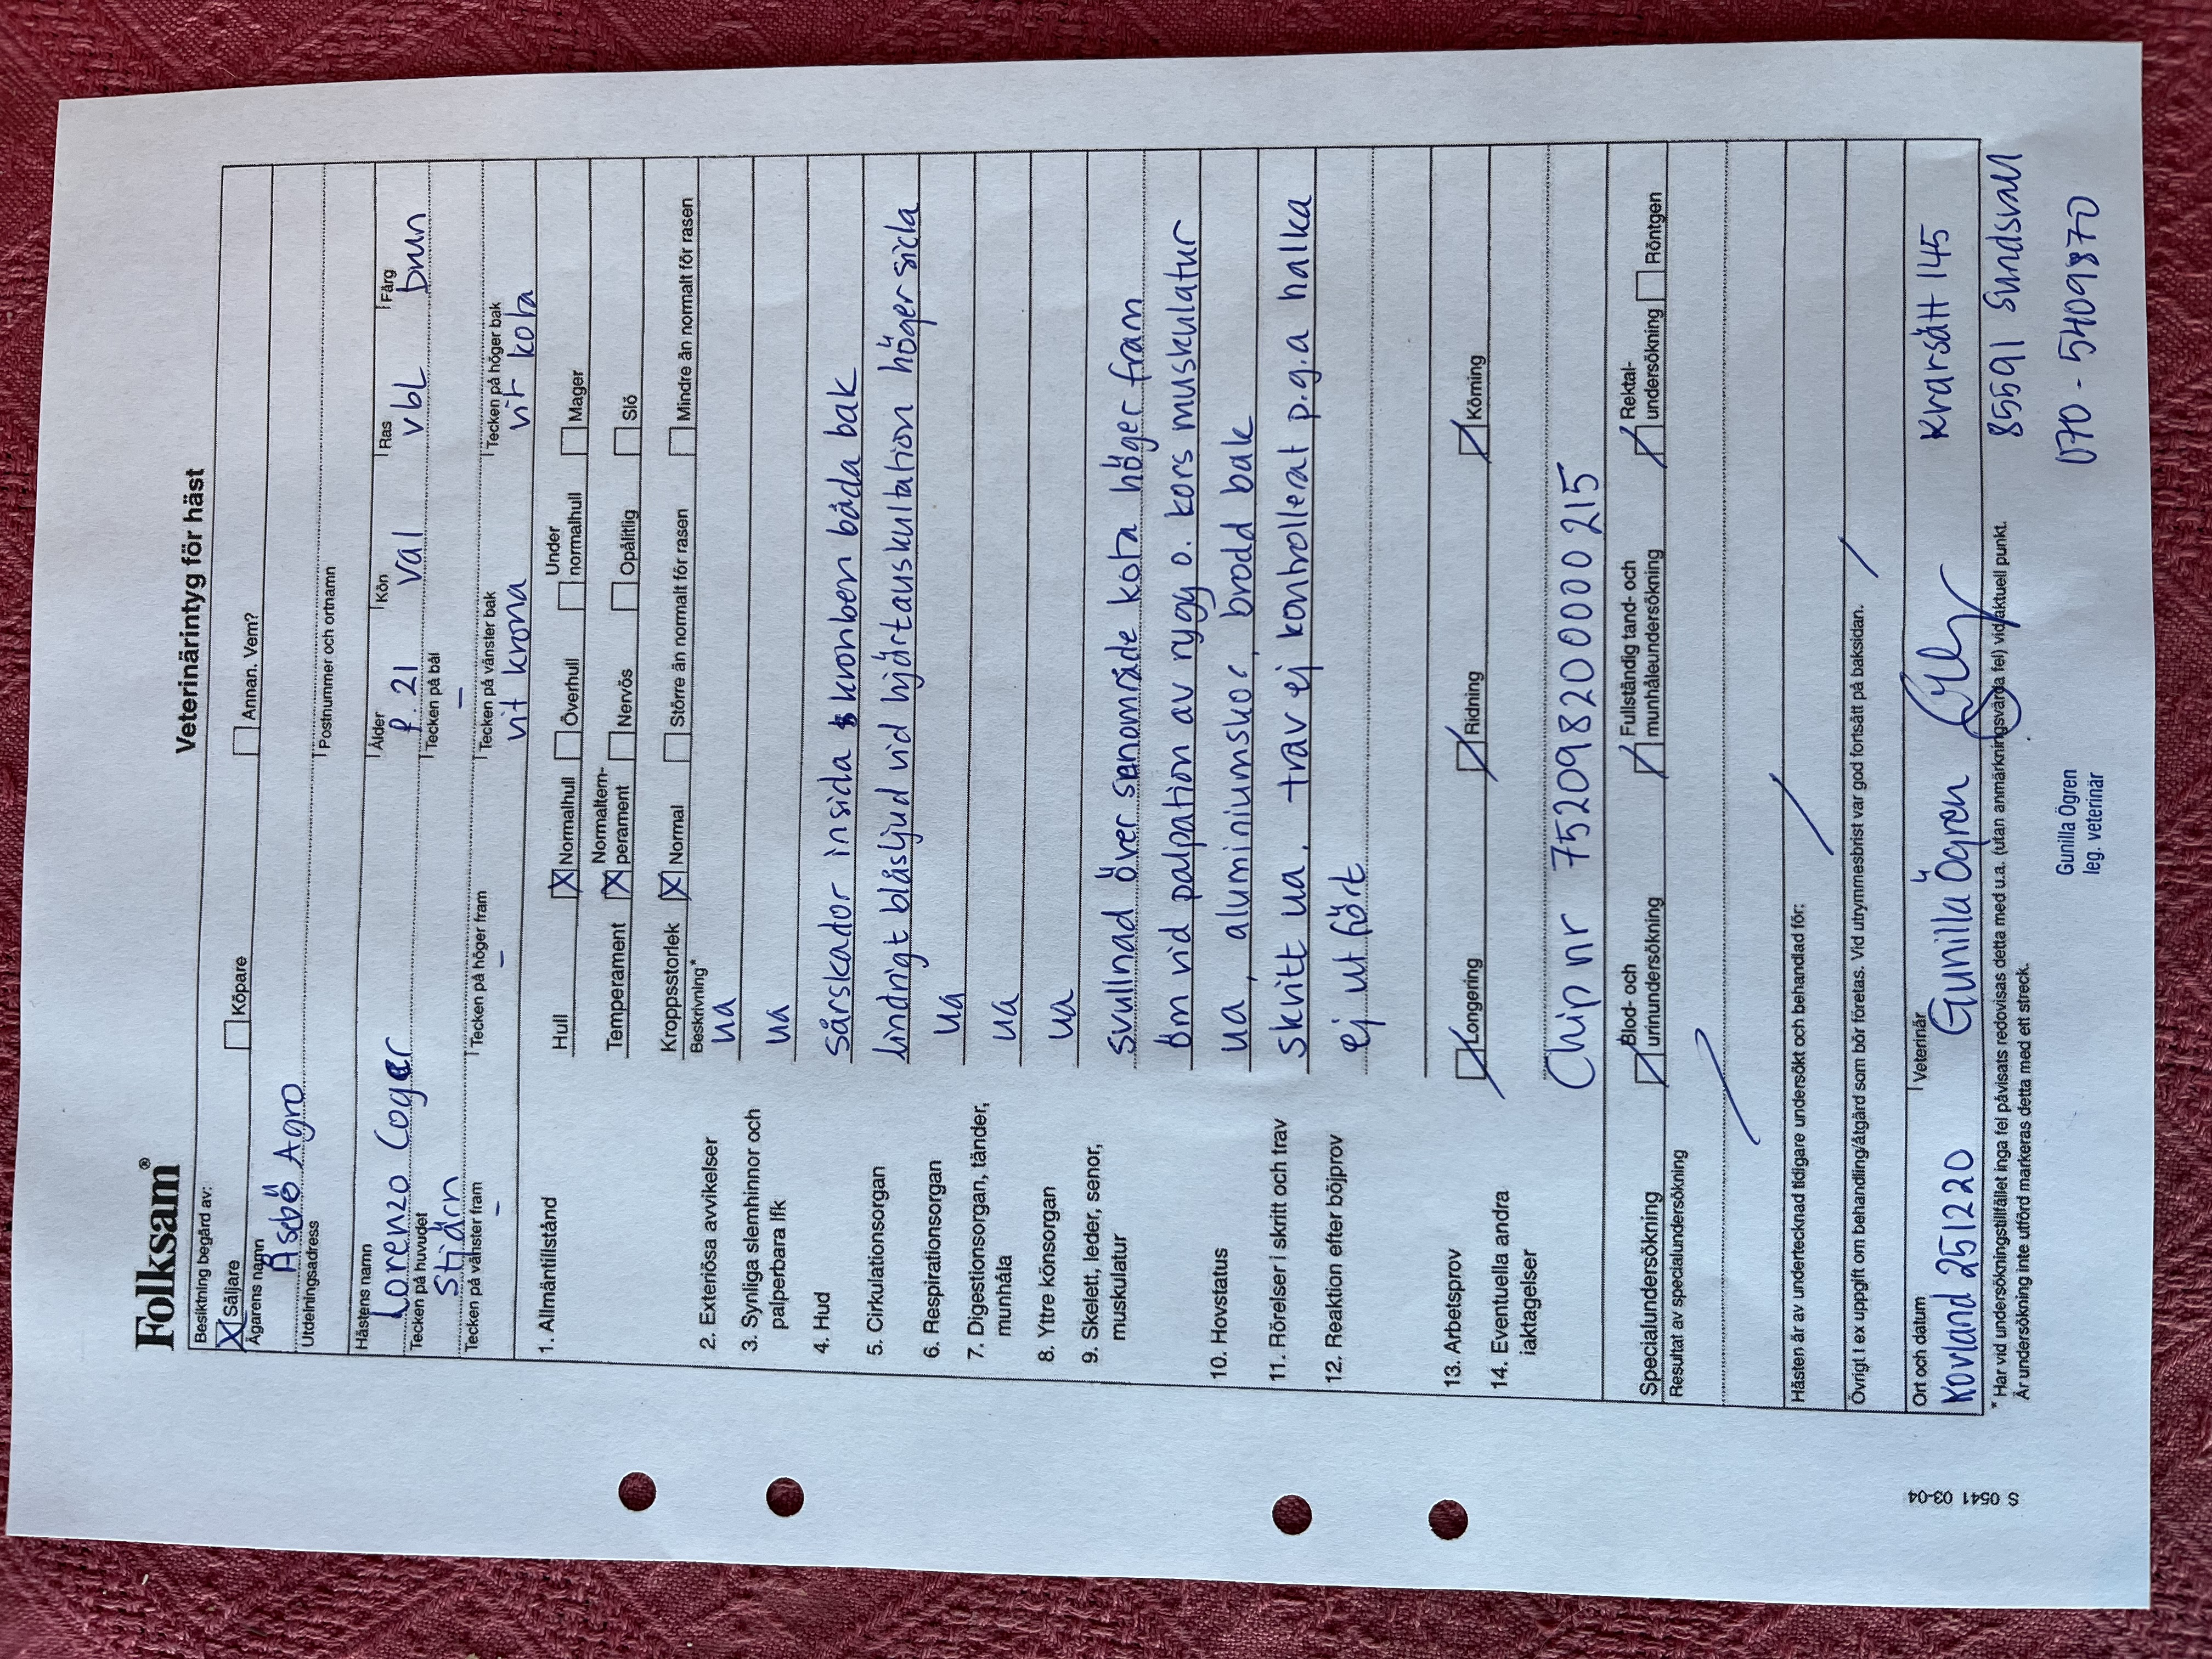 Folksam®
Veterinärintyg för häst
Besiktning begärd av:
X Säljare Köpare Annan. Vem?
Ägarens namn
Åsebö Agro
Utdelningsadress Postnummer och ortnamn
Hästens namn Ålder Kön Ras Färg
Lorenzo Coger f. 21 val vbl brun
Tecken på huvudet Tecken på bål
Stjärn –
Tecken på vänster fram Tecken på höger fram Tecken på vänster bak Tecken på höger bak
– – vit krona vit kota
1. Allmäntillstånd Hull X Normalhull Överhull Under normalhull Mager
Temperament X Normaltemperament Nervös Opålitlig Slö
Kroppsstorlek X Normal Större än normalt för rasen Mindre än normalt för rasen
Beskrivning*
2. Exteriösa avvikelser ua
3. Synliga slemhinnor och palperbara lfk ua
4. Hud sårskador insida kronben båda bak
5. Cirkulationsorgan lindrigt blåsljud vid hjärtauskultation höger sida
6. Respirationsorgan ua
7. Digestionsorgan, tänder, munhåla ua
8. Yttre könsorgan ua
9. Skelett, leder, senor, muskulatur svullnad över senområde kota höger fram
öm vid palpation av rygg o. kors muskulatur
10. Hovstatus ua, aluminiumskor, brodd bak
11. Rörelser i skritt och trav skritt ua, trav ej kontrollerat p.g.a halka
12. Reaktion efter böjprov ej utfört
13. Arbetsprov Longering Ridning Körning
14. Eventuella andra iakttagelser
Chip nr 752098200000215
Specialundersökning Blod- och urinundersökning Fullständig tand- och munhåleundersökning Rektal-undersökning Röntgen
Resultat av specialundersökning
Hästen är av undertecknad tidigare undersökt och behandlad för:
Övrigt t ex uppgift om behandling/åtgärd som bör företas. Vid utrymmesbrist var god fortsätt på baksidan.
Ort och datum Veterinär
Kovland 251220 Gunilla Ögren Kvarsätt 145
* Har vid undersökningstillfället inga fel påvisats redovisas detta med u.a. (utan anmärkningsvärda fel) vid aktuell punkt.
Är undersökning inte utförd markeras detta med ett streck.
85591 Sundsvall
070 - 5409870
Gunilla Ögren
leg. veterinär
S 0541 03-04